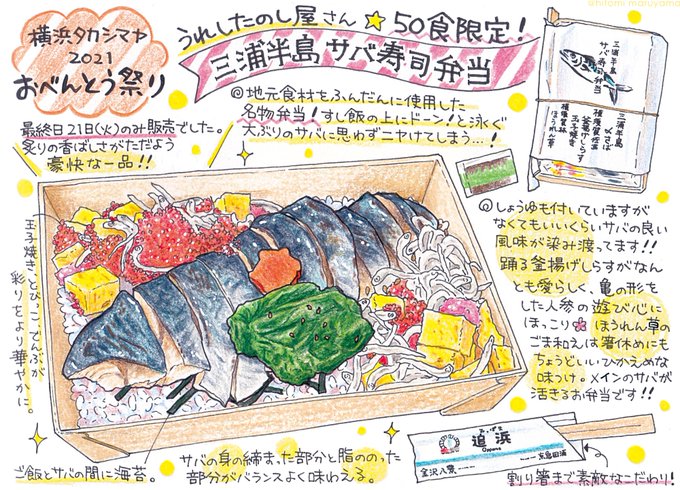 ©hitomi maruyama
横浜タカシマヤ
2021
おべんとう祭り
うれしたのし屋さん☆50食限定！
三浦半島 サバ寿司弁当
最終日21日(火)のみ販売でした。
炙りの香ばしさがただよう
豪快な一品!!
◎地元食材もふんだんに使用した
名物弁当！すし飯の上にドーン！と泳ぐ
大ぶりのサバに思わずニヤけてしまう…！
三浦半島
サバ寿司弁当
三浦半島
〆さば
横須賀佐島
釜揚げしらす
横須賀林
ほうれん草
玉子焼き
玉子焼き、とびっこ、でんぶが
彩りをより華やかに。
◎しょうゆも付いていますが
なくてもいいくらいサバの良い
風味が染み渡ってます!!
踊る釜揚げしらすがなん
とも愛らしく、亀の形を
した人参の遊び心に
ほっこり ほうれん草の
ごま和えは箸休めにも
ちょうどいいひかえめな
味つけ。メインのサバが
活きるお弁当です!!
ご飯とサバの間に海苔。
サバの身の締まった部分と脂ののった
部分がバランスよく味わえる。
おっぱま
追浜
Oppama
金沢八景
京急田浦
割り箸まで素敵なこだわり！